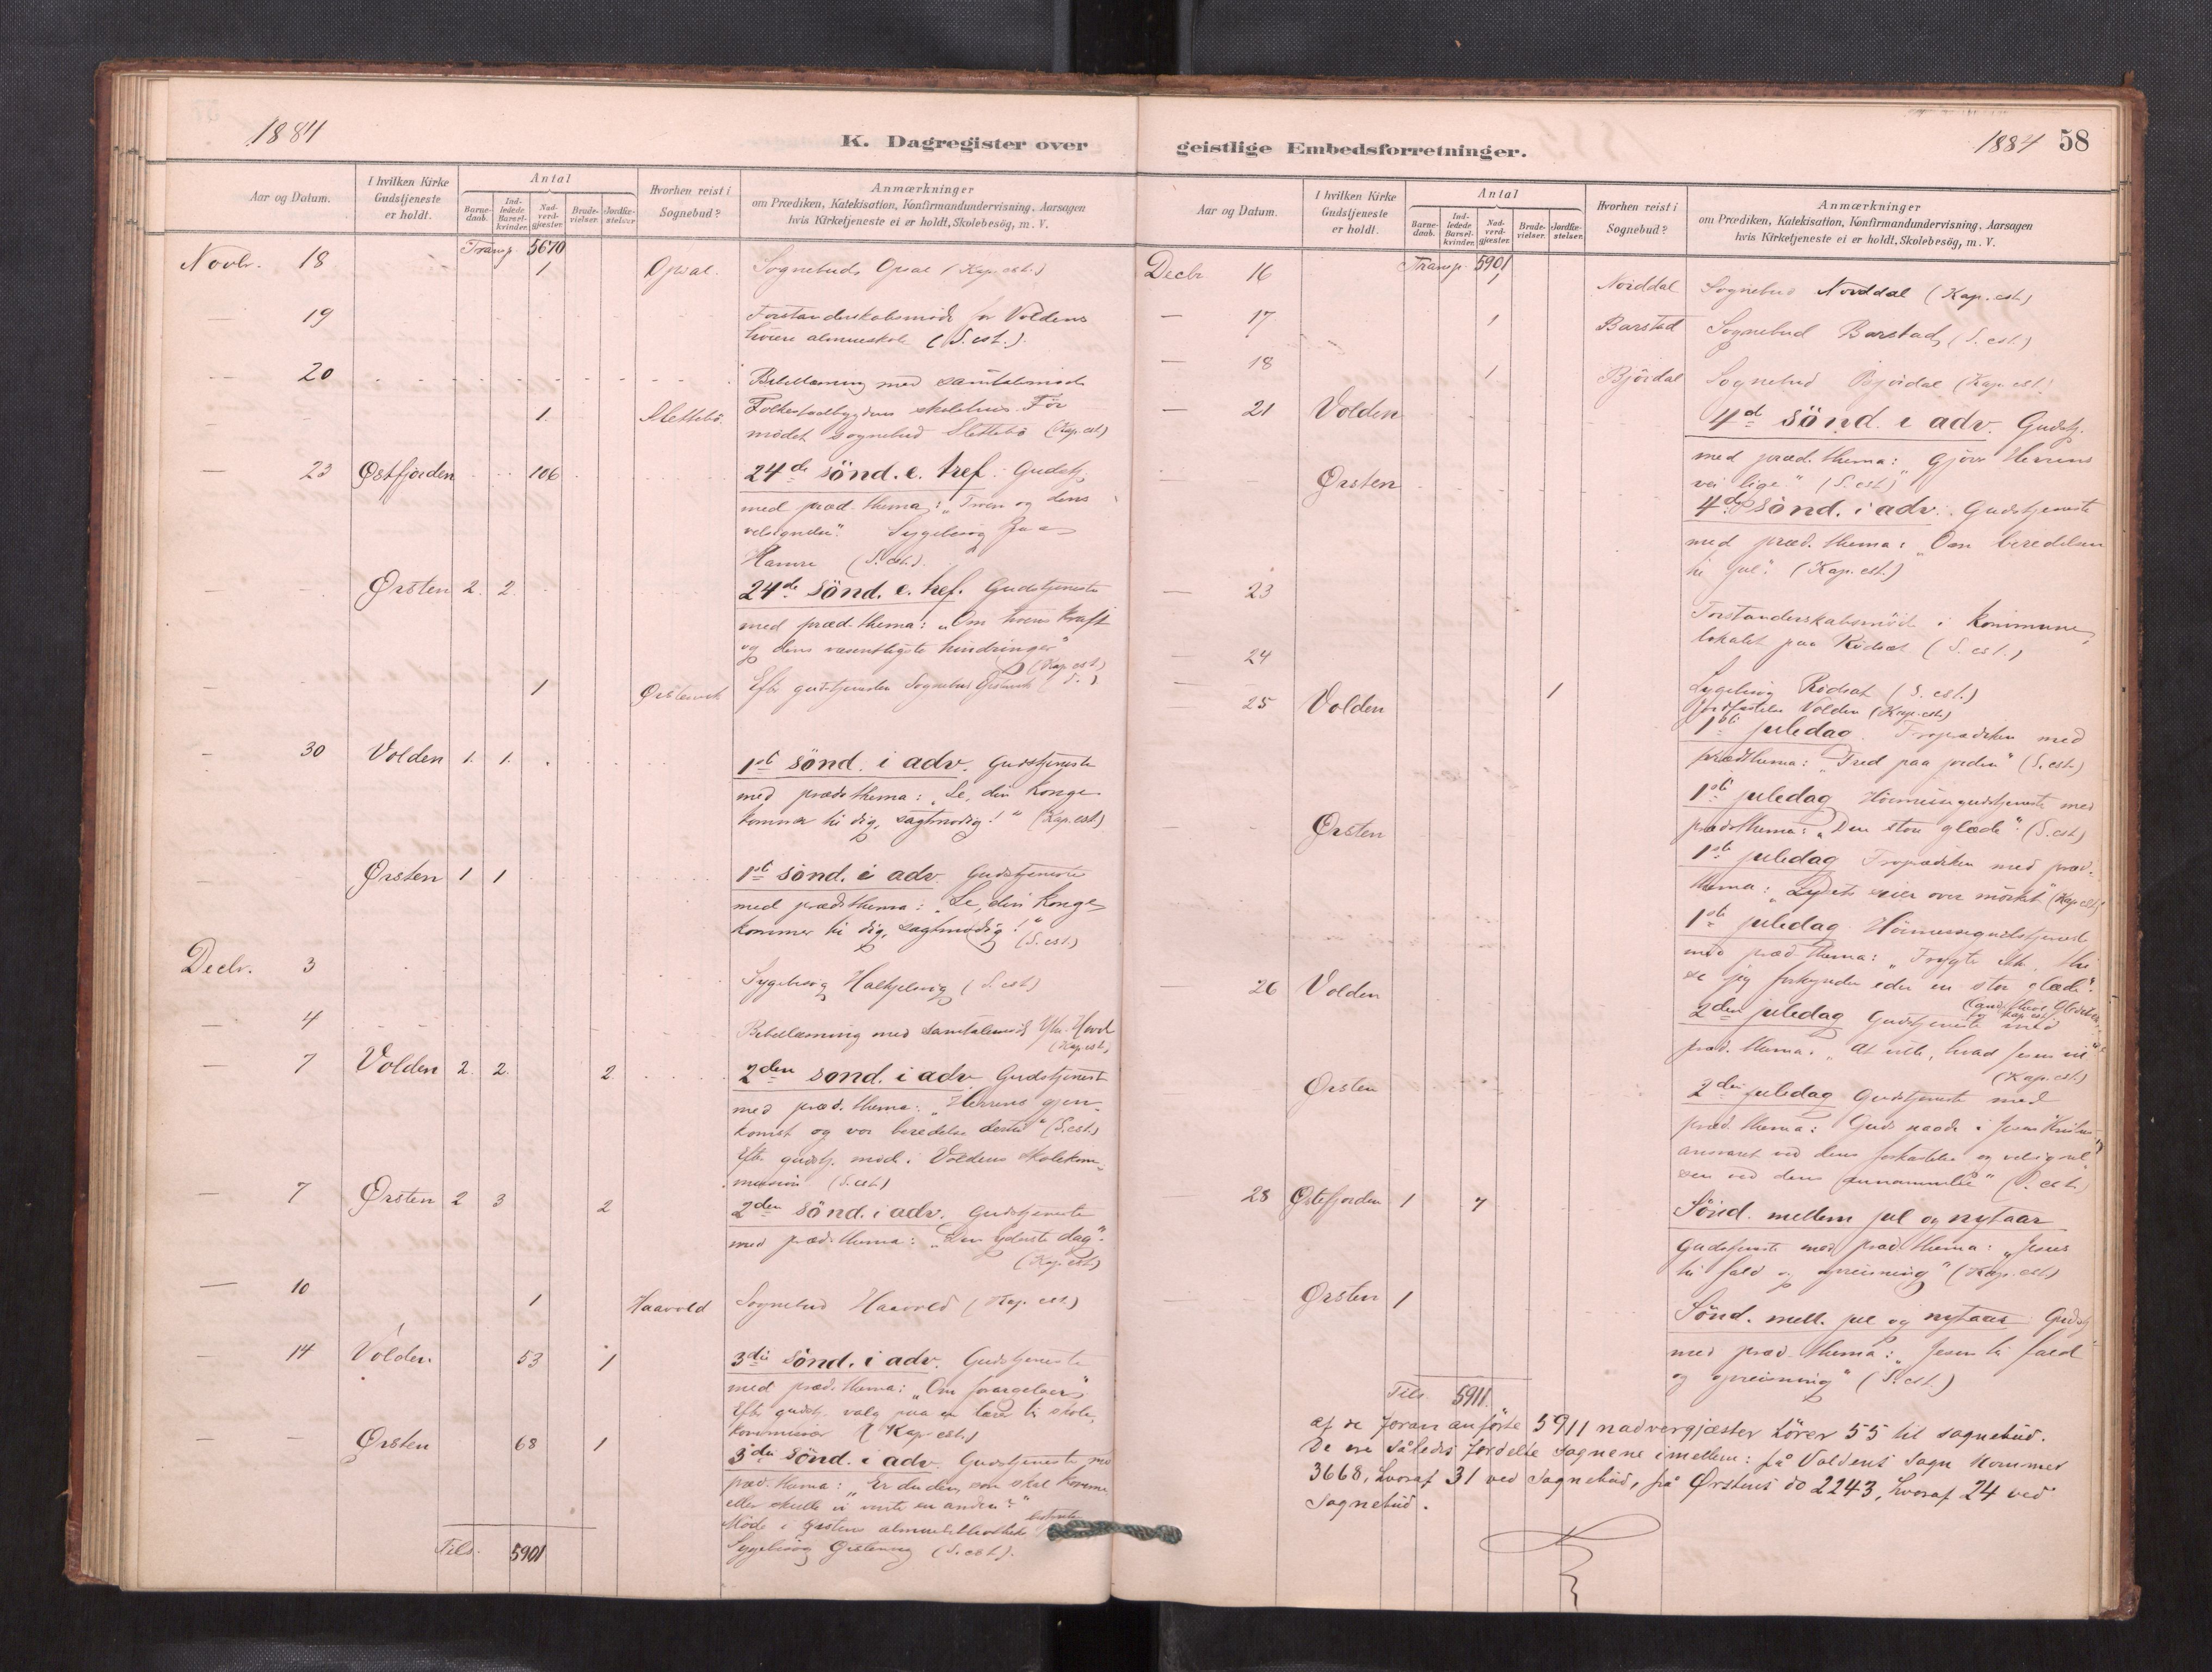 1884
K. Dagregister over
Aar og Datum.
I hvilken Kirke Gudstjeneste er holdt.
Antal
Barne-daab.
Ind-ledede Barsel-kvinder.
Nad-verd-gjæster.
Brude-vielser.
Jordfæ-stelser.
Hvorhen reist i Sognebud?
Anmærkninger
om Prædiken, Katekisation, Konfirmandundervisning, Aarsagen
hvis Kirketjeneste ei er holdt, Skolebesög, m. V.
Transp. 5670
Novbr. 18 1 Opsal. Sognebud Opsal (Kap. est.)
— 19 Forstanderskabsmöde for Voldens
höiere almueskole (S. est.).
— 20 Bibellæsning med samtalemöde
1. Slettebö. Folkestadbygdens skolehus. För
mödet sognebud Slettebö (Kap. est)
— 23 Østfjorden 106 24de sönd. e. tref. Gudstj.
med præd. thema: „Troen og dens
velsignelse". Sygebesög paa
Hamre (S. est.).
Ørsten 2. 2. 24de sönd. e. tref. Gudstjeneste
med præd. thema: „Om troens kraft
og dens væsentligste hindringer"
(Kap. est.)
1 Ørstenvik Efter gudstjenesten Sognebud Ørstenvik (S.)
— 30 Volden 1. 1. 1ste sönd. i adv. Gudstjeneste
med præds thema: „Se, din Konge
kommer til dig, sagtmodig!" (Kap. est)
Ørsten 1 1 1ste sönd. i adv. Gudstjeneste
med præds thema: „Se, din Konge
kommer til dig, sagtmodig!"
(S. est)
Decbr. 3 Sygebesög Halkjelsvig (S. est)
— 4 Bibellæsning med samtalemöde Ytre Hovd
(Kap. est)
— 7 Volden 2. 2. 2. 2den sönd. i adv. Gudstjeneste
med præd. thema: „Herrens gjen-
komst og vor beredelse dertil" (S. est)
Efter gudstj. möde i Voldens Skolekom-
mission (S. est)
— 7 Ørsten 2 3 2 2den sönd. i adv. Gudstjeneste
med præds thema: „Den yderste dag".
(Kap. est)
— 10 1 Haavold Sognebud Haavold (Kap. est)
— 14 Volden. 53 1 3die sönd. i adv. Gudstjeneste
med præds thema: „Om forargelser"
Efter gudstj. valg paa en lærer til skole-
kommission (Kap. est.)
— — Ørsten 68 1 3die sönd. i adv. Gudstjeneste med
præd. thema: „Er du den, som skal komme,
eller skulle vi vente en anden?"
Möde i Ørstens almuebibliotheks bestyrelse
Sygebesög Ørstenvig (S. est.).
Tils. 5901
geistlige Embedsforretninger.
1884 58
Aar og Datum.
I hvilken Kirke Gudstjeneste er holdt.
Antal
Barne-daab.
Ind-ledede Barsel-kvinder.
Nad-verd-gjæster.
Brude-vielser.
Jordfæ-stelser.
Hvorhen reist i Sognebud?
Anmærkninger
om Prædiken, Katekisation, Konfirmandundervisning, Aarsagen
hvis Kirketjeneste ei er holdt, Skolebesög, m. V.
Transp. 5901
Decbr 16 1 Norddal Sognebud Norddal (Kap. est)
— 17 1 Barstad Sognebud Barstad (S. est.)
— 18 1 Björdal Sognebud Björdal (Kap. est.)
— 21 Volden 4de sönd. i adv. Gudstj.
med præd. thema: „Gjörer Herrens
vei lige." (S. est)
Ørsten 4de sönd. i adv. Gudstjeneste
med præd. thema: „Om beredelsen
til jul". (Kap. est.)
— 23 Forstanderskabsmöde i Kommune-
lokalet paa Rödset (S. est.)
— 24 Sygebesög Rödset (S. est.)
1 Jordfæstelse Volden (Kap. est.)
— 25 Volden 1ste juledag. Froprædiken med
prædthema: „Fred paa jorden" (S. est.)
1ste juledag Höimessegudstjeneste med
prædsthema: „Den store glæde". (S. est)
Ørsten 1ste juledag Froprædiken med præd.
thema: „Lysets seier over mörket" (Kap est)
1ste juledag. Höimessegudstjeneste
med præd. thema: „Frygte ikke, thi
se jeg forkynder eder en stor glæde".
— 26 Volden 2den juledag Gudstjeneste med
præd. thema: „At ville, hvad Jesus vil"
(Kap. est.)
Ørsten 2den juledag Gudstjeneste med
præd. thema: Guds naade i Jesus Kristus
ansvaret ved dens forkastelse og velsignel-
sen ved dens annammelse" (S. est.)
28 Østefjorden 1 7 Sönd. mellem jul og nytaar
Gudstjeneste med præd. thema: „Jesus
til fald og opreisning" (Kap. est)
Ørsten 1 Sönd. mell. jul og nytaar Gudstj.
med præd. thema: „Jesus til fald
og opreisning" (S. est.)
Tils. 5911.
af de foran anförte 5911 nadvergjæster hörer 55 til sognebud.
De ere således fordelte sognene imellem: på Voldens sogn kommer
3668, hvoraf 31 ved sognebud, på Ørstens do 2243, hvoraf 24 ved
sognebud.